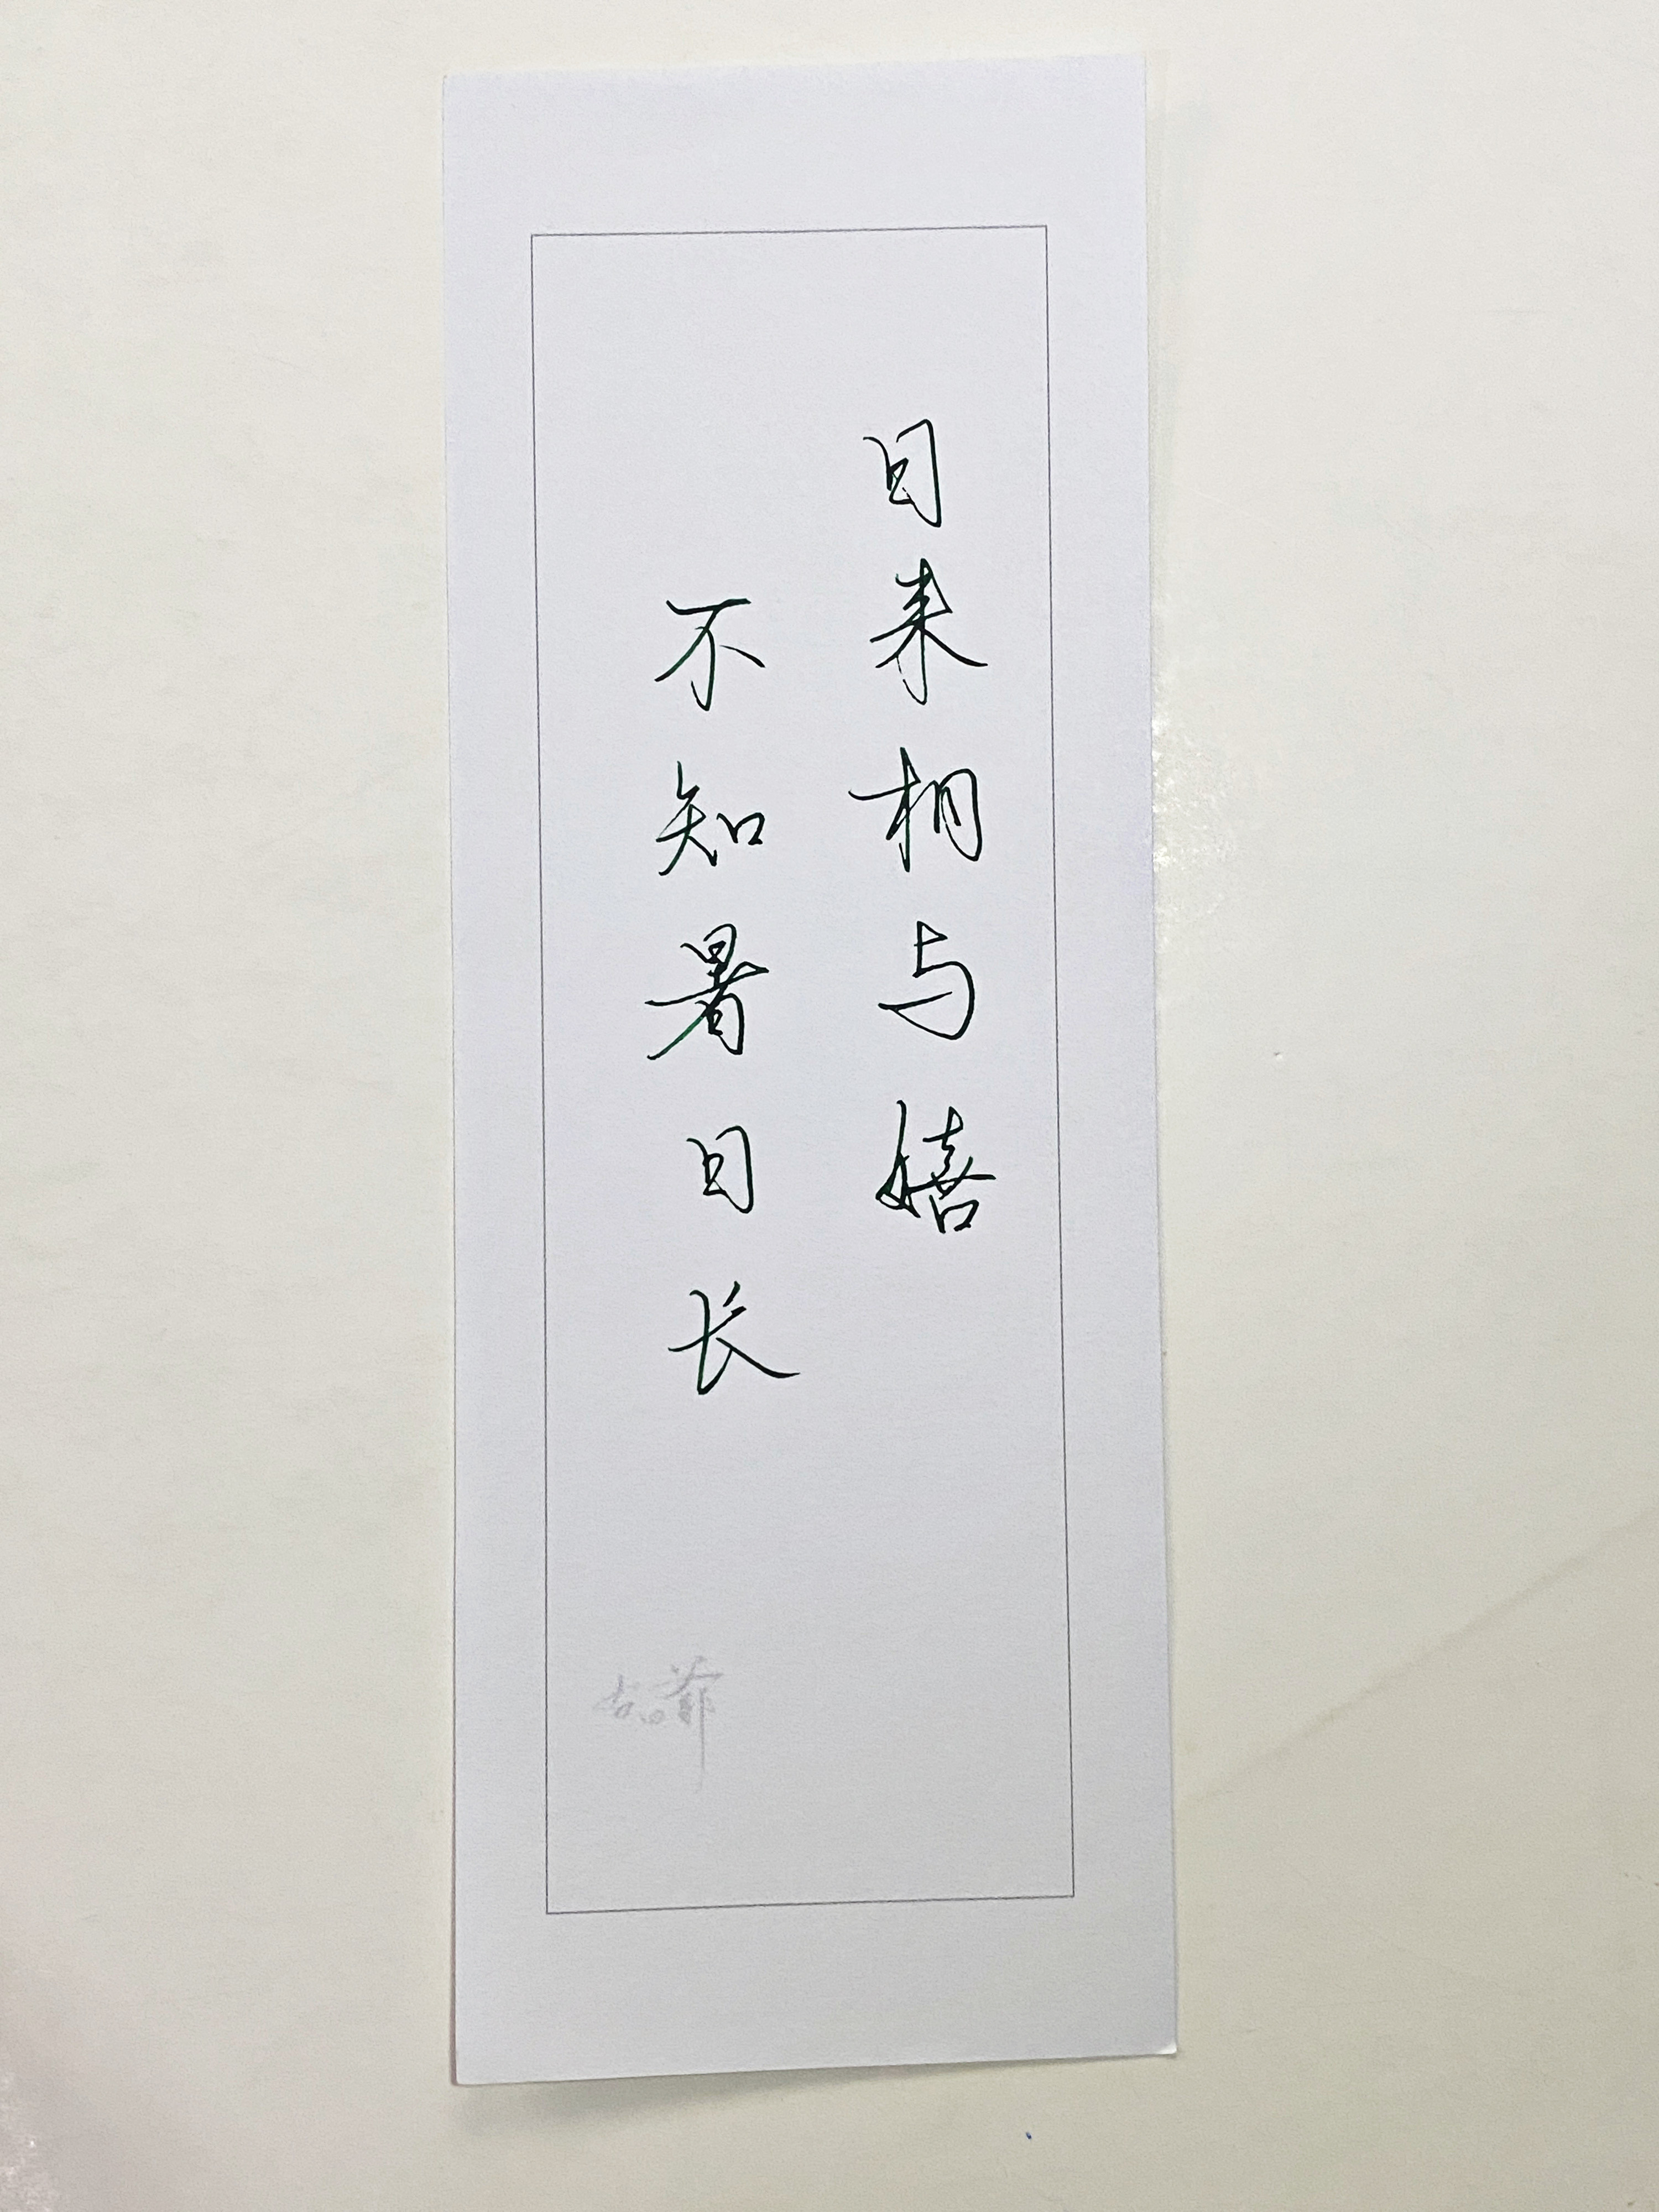 日来相与嬉
不知暑日长